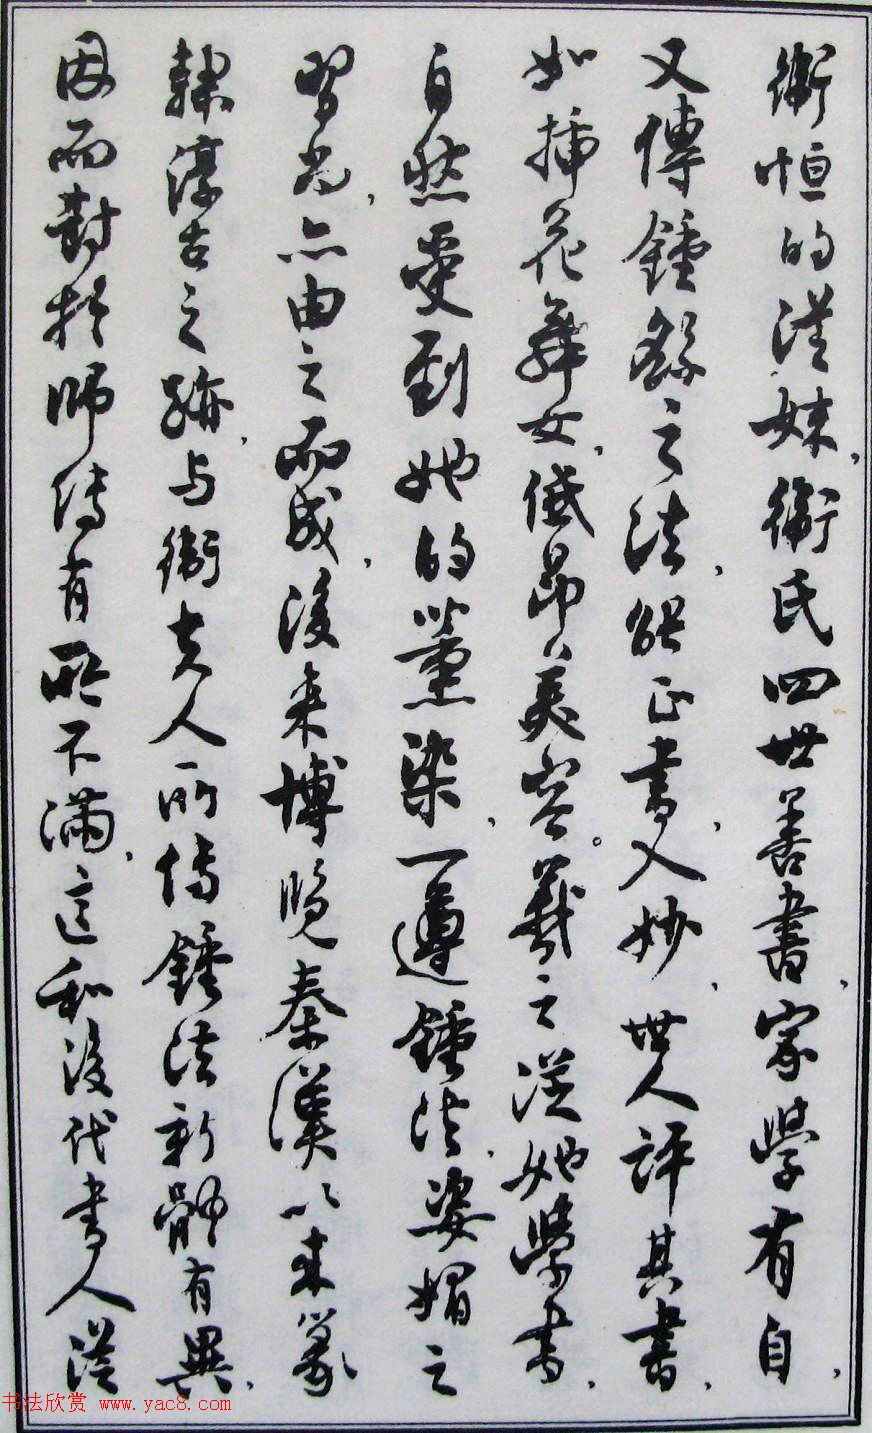 衛恒的從妹，衛氏四世善書，家學有自，
又傳鍾繇之法，能正書，入妙，世人評其書，
如插花舞女，低昂美容。羲之從她學書，
自然受到她的薰染，一遵鍾法，姿媚之
習尚，亦由之而成，後来博覽秦漢以来篆
隸淳古之跡，与衛夫人所传鍾法新體有異，
因而對於師传有所不滿，這和後代書人從
书法欣赏 www.yac8.com